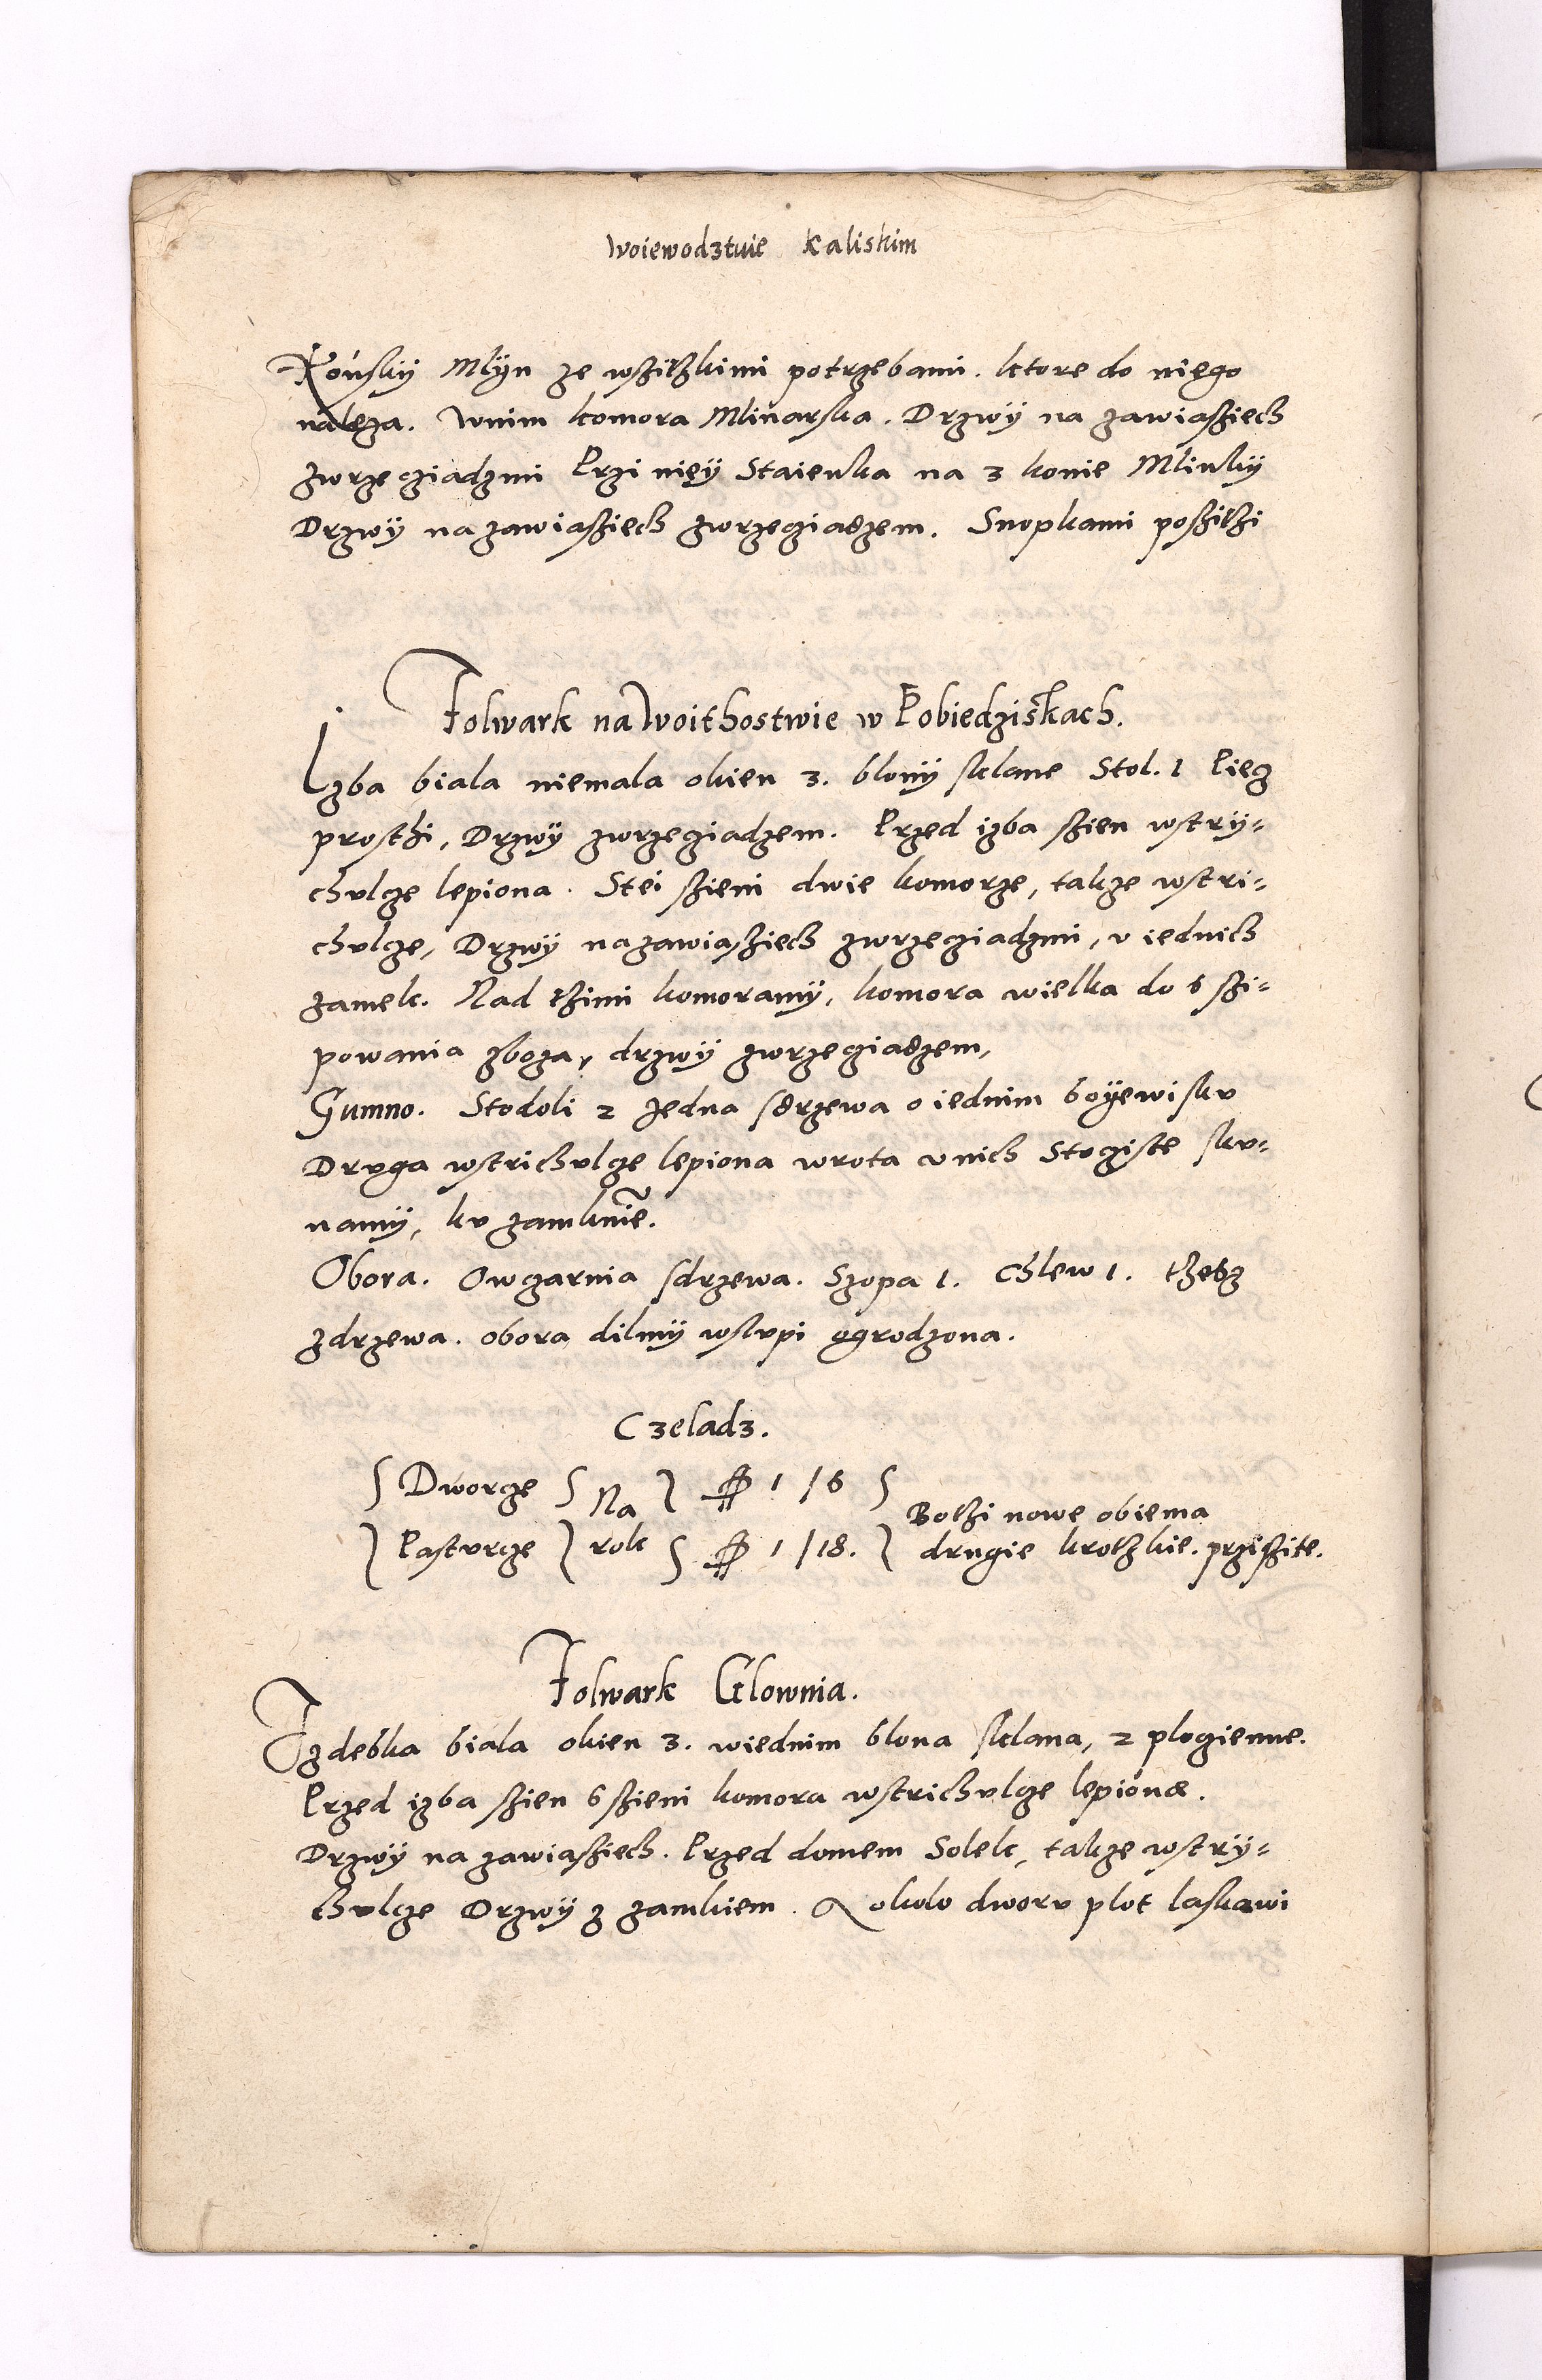 Woiewodztwie Kaliskim
Końsky Mlÿn ze wszitzkimi potrzebami. ktore do niego
należa. Wnim komora Mlinarska. Drzwÿ na zawiasziech
zwrzecziadzmi Przi nieÿ Staienka na 3 konie Mlinskÿ
Drzwÿ na zawiasziech zwrzecziadzem. Snopkami poszitzi
Folwark na Woithostwie w Pobiedziskach.
Izba biala niemala okien 3. blonÿ sklane Stol. 1 Piecz
prosthi, Drzwÿ zwrzecziadzem. Przed izba szien wstry=
chulcze lepiona. Stei szieni dwie komorze, takze wstri=
chulcze, Drzwÿ na zawiasziech zwrzecziadzmi, v iednich
zamek. Nad tzimi komoramÿ, komora wielka do sszi=
powania zboza, drzwÿ zwrzecziadzem,
Gumno. Stodoli 2 Jedna sdrzewa o iednim boÿewisku
Druga wstrichulcze lepiona wrota v nich Stogiste sku=
namÿ, ku zamknie.
Obora. Owczarnia sdrzewa. Szopa 1. Chlew 1. thetz
zdrzewa. obora dilmÿ wslupi ogrodzona.
Czeladz.
Dworze Na 1/6
Pasturze rok 1/18. Bothi nowe obiema
drugie krotzkie. prziszite.
Folwark Glownia.
Izdebka biala okien 3. wiednim blona sklana, 2 plogienne.
Przed izba szien s szieni komora wstrichulcze lepiona.
Drzwÿ na zawiasziech. Przed domem Solek, takze wstry=
chulcze Drzwÿ z zamkiem. okolo dworu plot laskawi